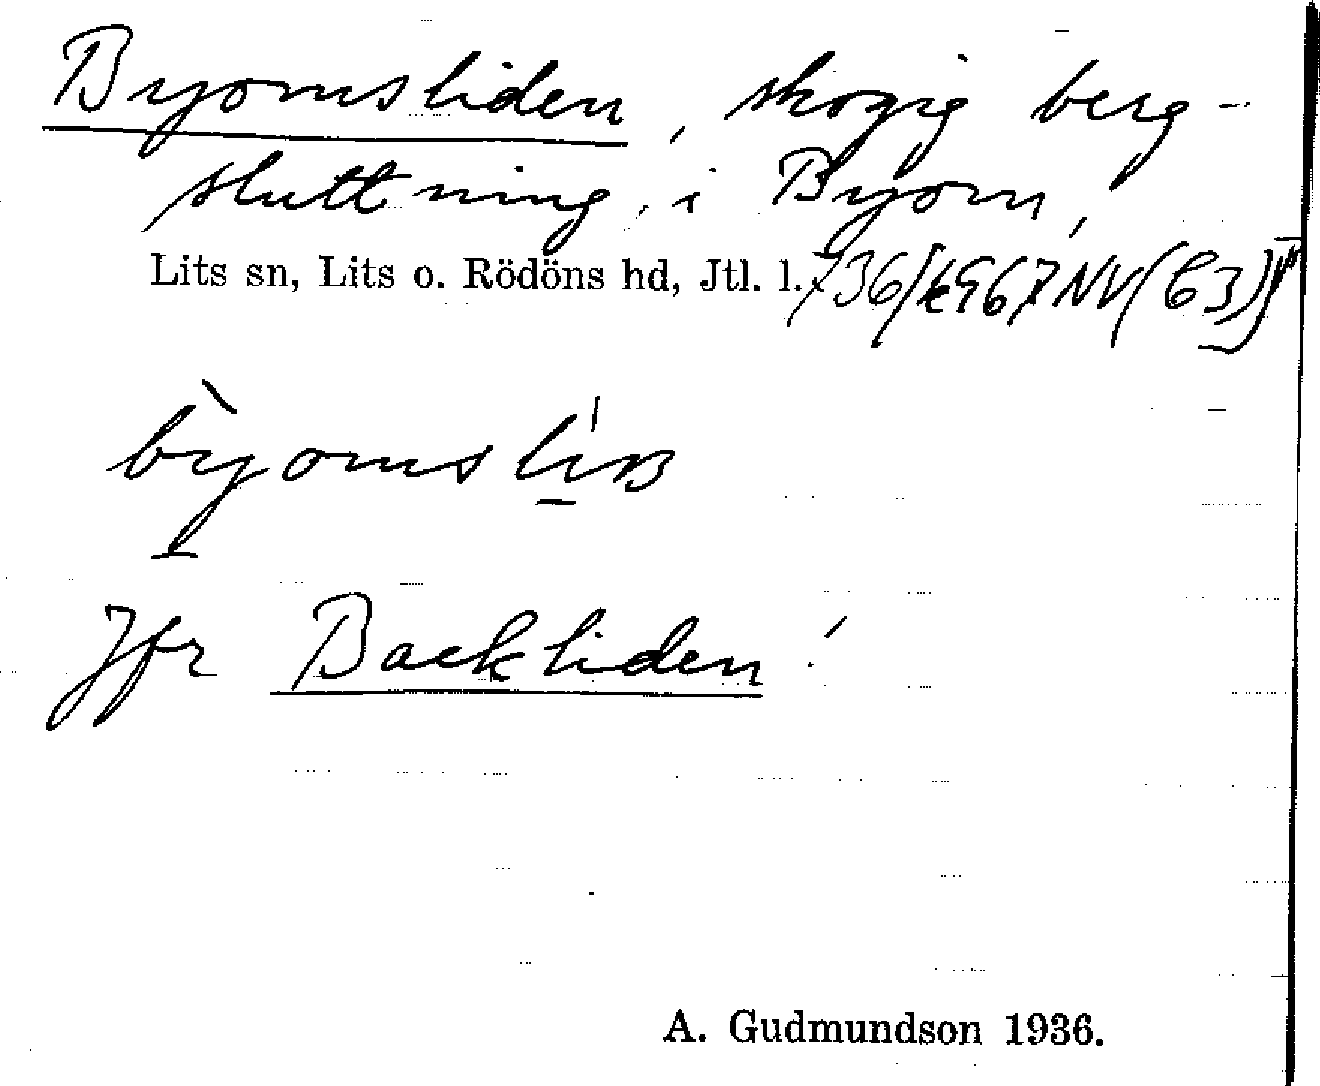 Byomsliden, skogig berg-
sluttning, i Byom,
Lits sn, Lits o. Rödöns hd, Jtl. l.
byomslin
Jfr Backliden!
A. Gudmundson 1936.